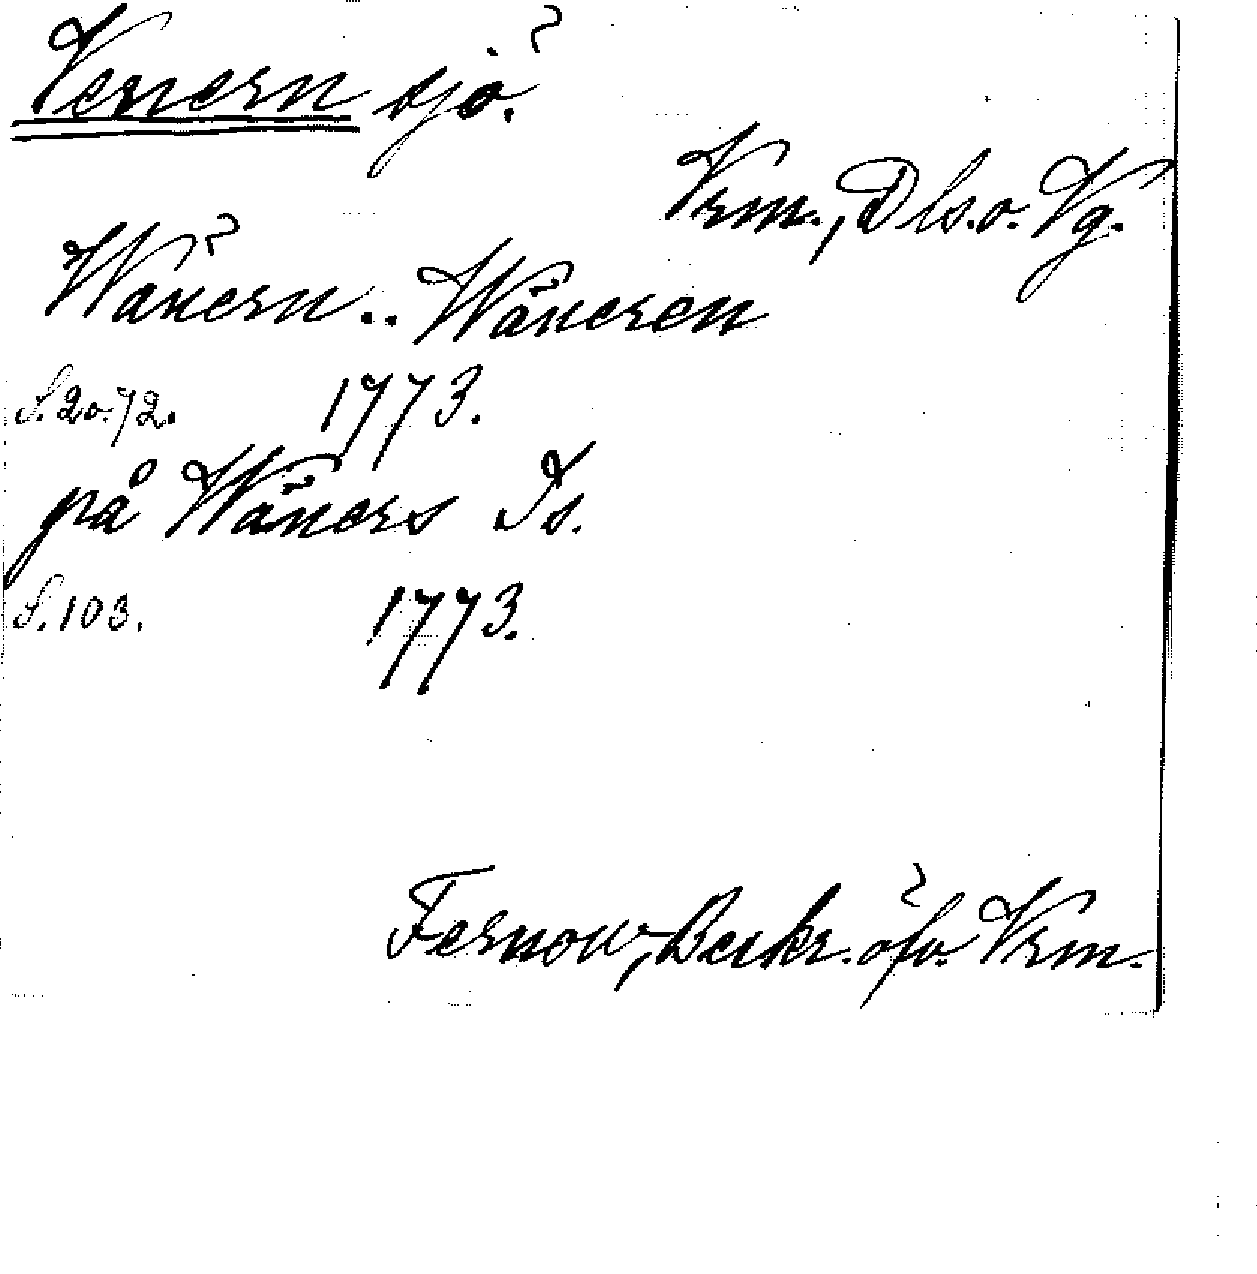 Venern sjö.
Vrm., Dls. o. Vg.
Wänern .. Wäneren
S. 20. 72. 1773.
på Wäners Is.
S. 103. 1773.
Fernow, Beskr. öfv. Vrm.